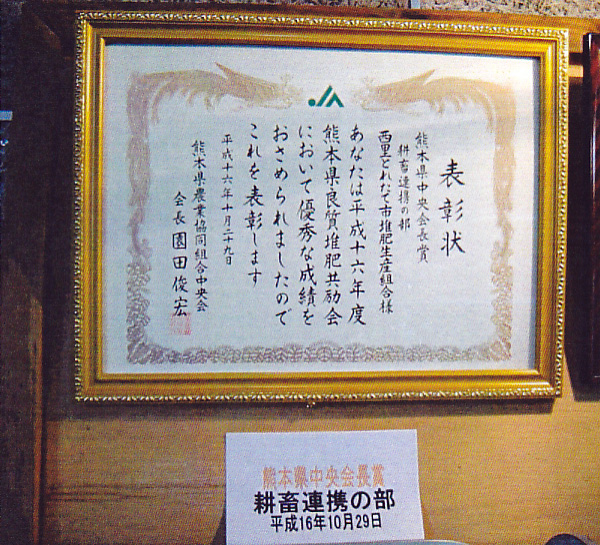 JA
表彰状
熊本県中央会長賞
耕畜連携の部
西里とれたて市堆肥生産組合様
あなたは平成十六年度
熊本県良質堆肥共励会
において優秀な成績を
おさめられましたので
これを表彰します
平成十六年十月二十九日
熊本県農業協同組合中央会
会長 園田俊宏
熊本県中央会長賞
耕畜連携の部
平成16年10月29日